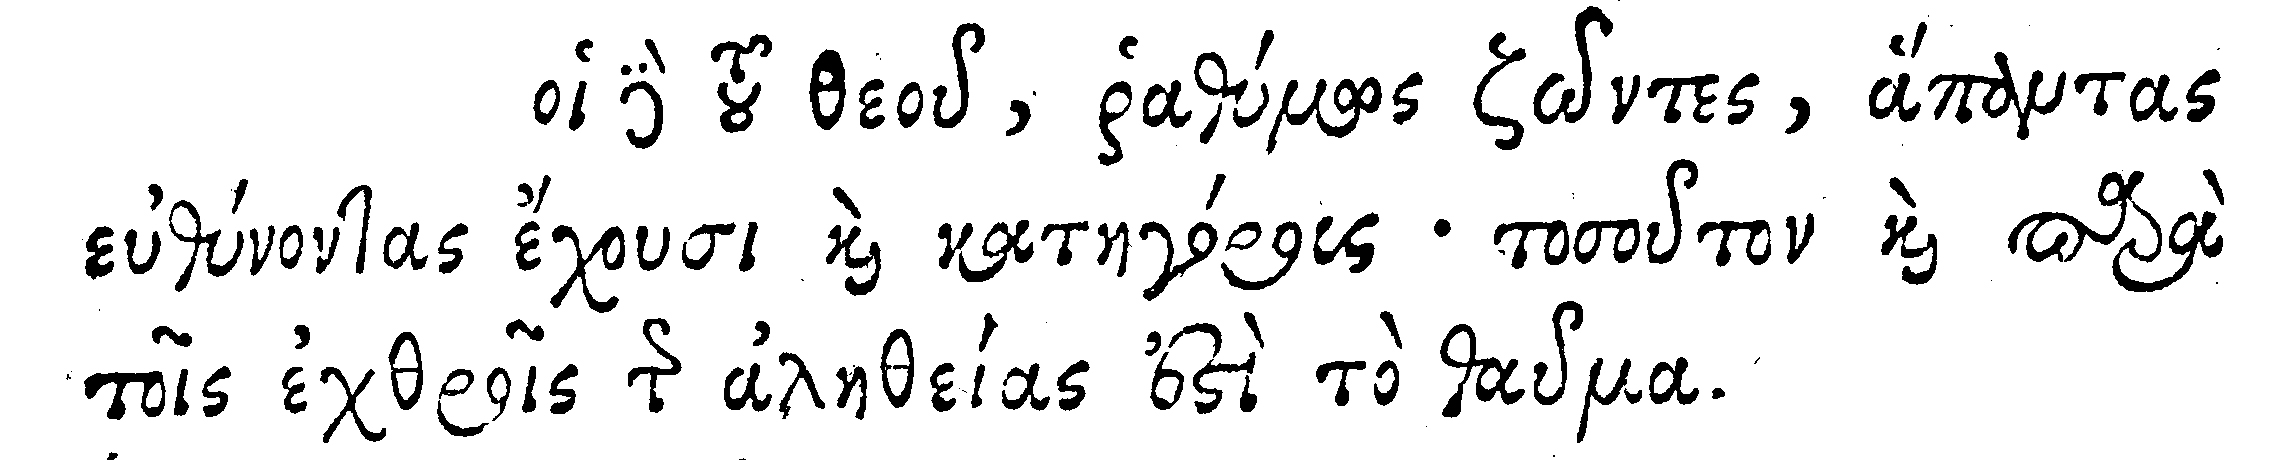 οἱ δὲ τοῦ θεοῦ, ῥαθύμως ζῶντες, ἅπαντας
εὐθύνοντας ἔχουσι καὶ κατηγόρους· τοσοῦτον καὶ παρὰ
τοῖς ἐχθροῖς τῆς ἀληθείας ἐστὶ τὸ θαῦμα.